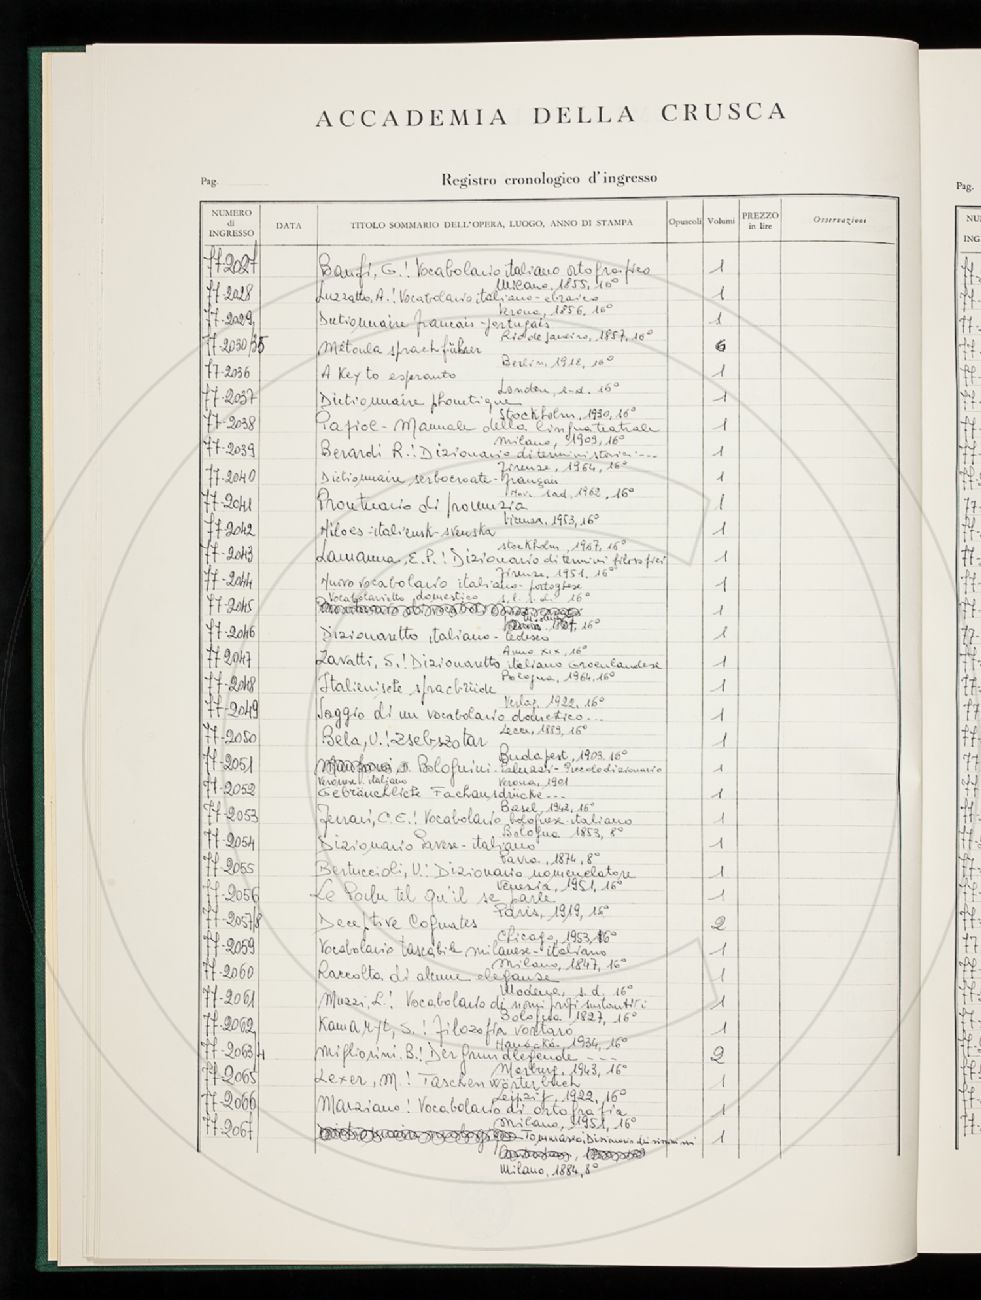 ACCADEMIA DELLA CRUSCA
Pag.
Registro cronologico d'ingresso
Pag.
NUMERO di INGRESSO DATA TITOLO SOMMARIO DELL'OPERA, LUOGO, ANNO DI STAMPA Opuscoli Volumi PREZZO in lire Osservazioni
77-2027 Banfi, G.! Vocabolario italiano ortografico 1
Milano, 1855, 16°
77-2028 Luzzatto, A.! Vocabolario italiano-ebraico 1
Verona, 1856, 16°
77-2029 Dictionnaire français-portugais 1
Rio de Janeiro, 1857, 16°
77-2030/35 Metoula sprachführer 6
Berlin, 1918, 16°
77-2036 A Key to esperanto 1
London, s.d. 16°
77-2037 Dictionnaire phonetique 1
Stockholm, 1930, 16°
77-2038 Manuale della lingua teatrale 1
Milano, 1909, 16°
77-2039 Berardi R.! Dizionario di termini storici--- 1
Firenze, 1964, 16°
77-2040 Dictionnaire serbocroate-français 1
Novi sad, 1962, 16°
77-2041 Prontuario di pronunzia 1
1953, 16°
77-2042 italiensk-svenska 1
Stockholm, 1967, 16°
77-2043 Lamanna, E.P.! Dizionario di termini filosofici 1
Firenze, 1951, 16°
77-2044 Nuovo vocabolario italiano-portoghese 1
s.l. s.d. 16°
77-2045 Vocabolarietto domestico 1
16°
77-2046 Dizionaretto italiano-tedesco 1
Anno XIX, 16°
77-2047 Zavatti, S.! Dizionaretto italiano Groenlandese 1
Bologna, 1964, 16°
77-2048 Italienische sprachbrücke 1
Verlag, 1922, 16°
77-2049 Saggio di un vocabolario domestico... 1
Lecce, 1889, 16°
77-2050 Bela, V.! Zsebszotar 1
Budapest, 1903, 16°
77-2051 Bolognini-Patuzzi-Piccolo dizionario 1
Veronese-italiano Verona, 1901
77-2052 Gebräuchliche Fachausdrücke--- 1
Basel, 1942, 16°
77-2053 Ferrari, C.E.! Vocabolario bolognese-italiano 1
Bologna 1853, 8°
77-2054 Dizionario Pavese-italiano 1
Pavia, 1874, 8°
77-2055 Bertuccioli, V.! Dizionario nomenclatore 1
Venezia, 1951, 16°
77-2056 Le Parler tel qu'il se parle 1
Paris, 1919, 16°
77-2057/8 Deceptive Cognates 2
Chicago, 1953, 16°
77-2059 Vocabolario tascabile milanese-italiano 1
Milano, 1847, 16°
77-2060 Raccolta di alcune eleganze 1
Modena, s.d. 16°
77-2061 Muzzi, L.! Vocabolario di nomi propri sustantivi 1
Bologna 1827, 16°
77-2062 S.! Filozofia vortaro 1
1934, 16°
77-2063/4 Migliorini B.! Der grundlegende --- 2
Marburg, 1943, 16°
77-2065 Lexer, M.! Taschen wörterbuch 1
Leipzig, 1922, 16°
77-2066 Marziano! Vocabolario di ortografia 1
Milano, 1951, 16°
77-2067 Tommaseo, Dizionario dei sinonimi 1
Milano, 1884, 8°